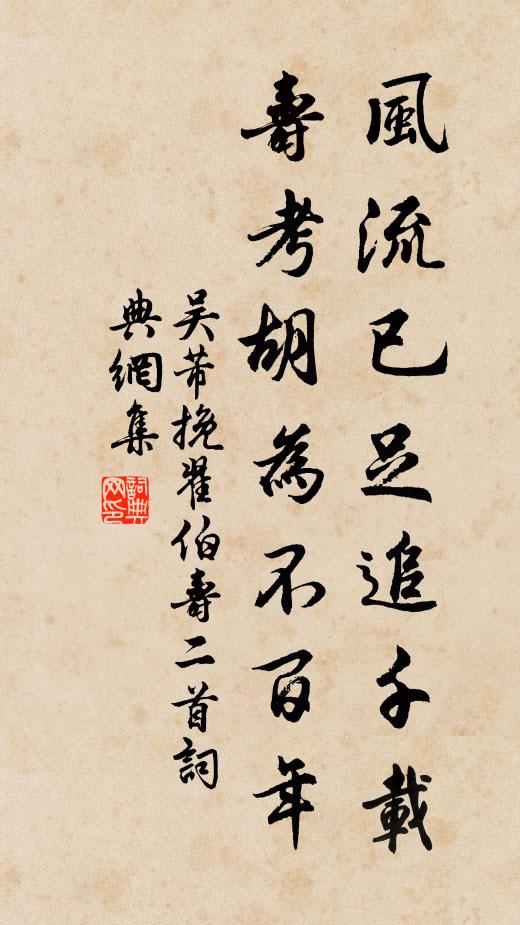 風流已足追千載
壽考胡為不百年
吴芾挽翟伯壽二首詞
典網集
詞典
网印